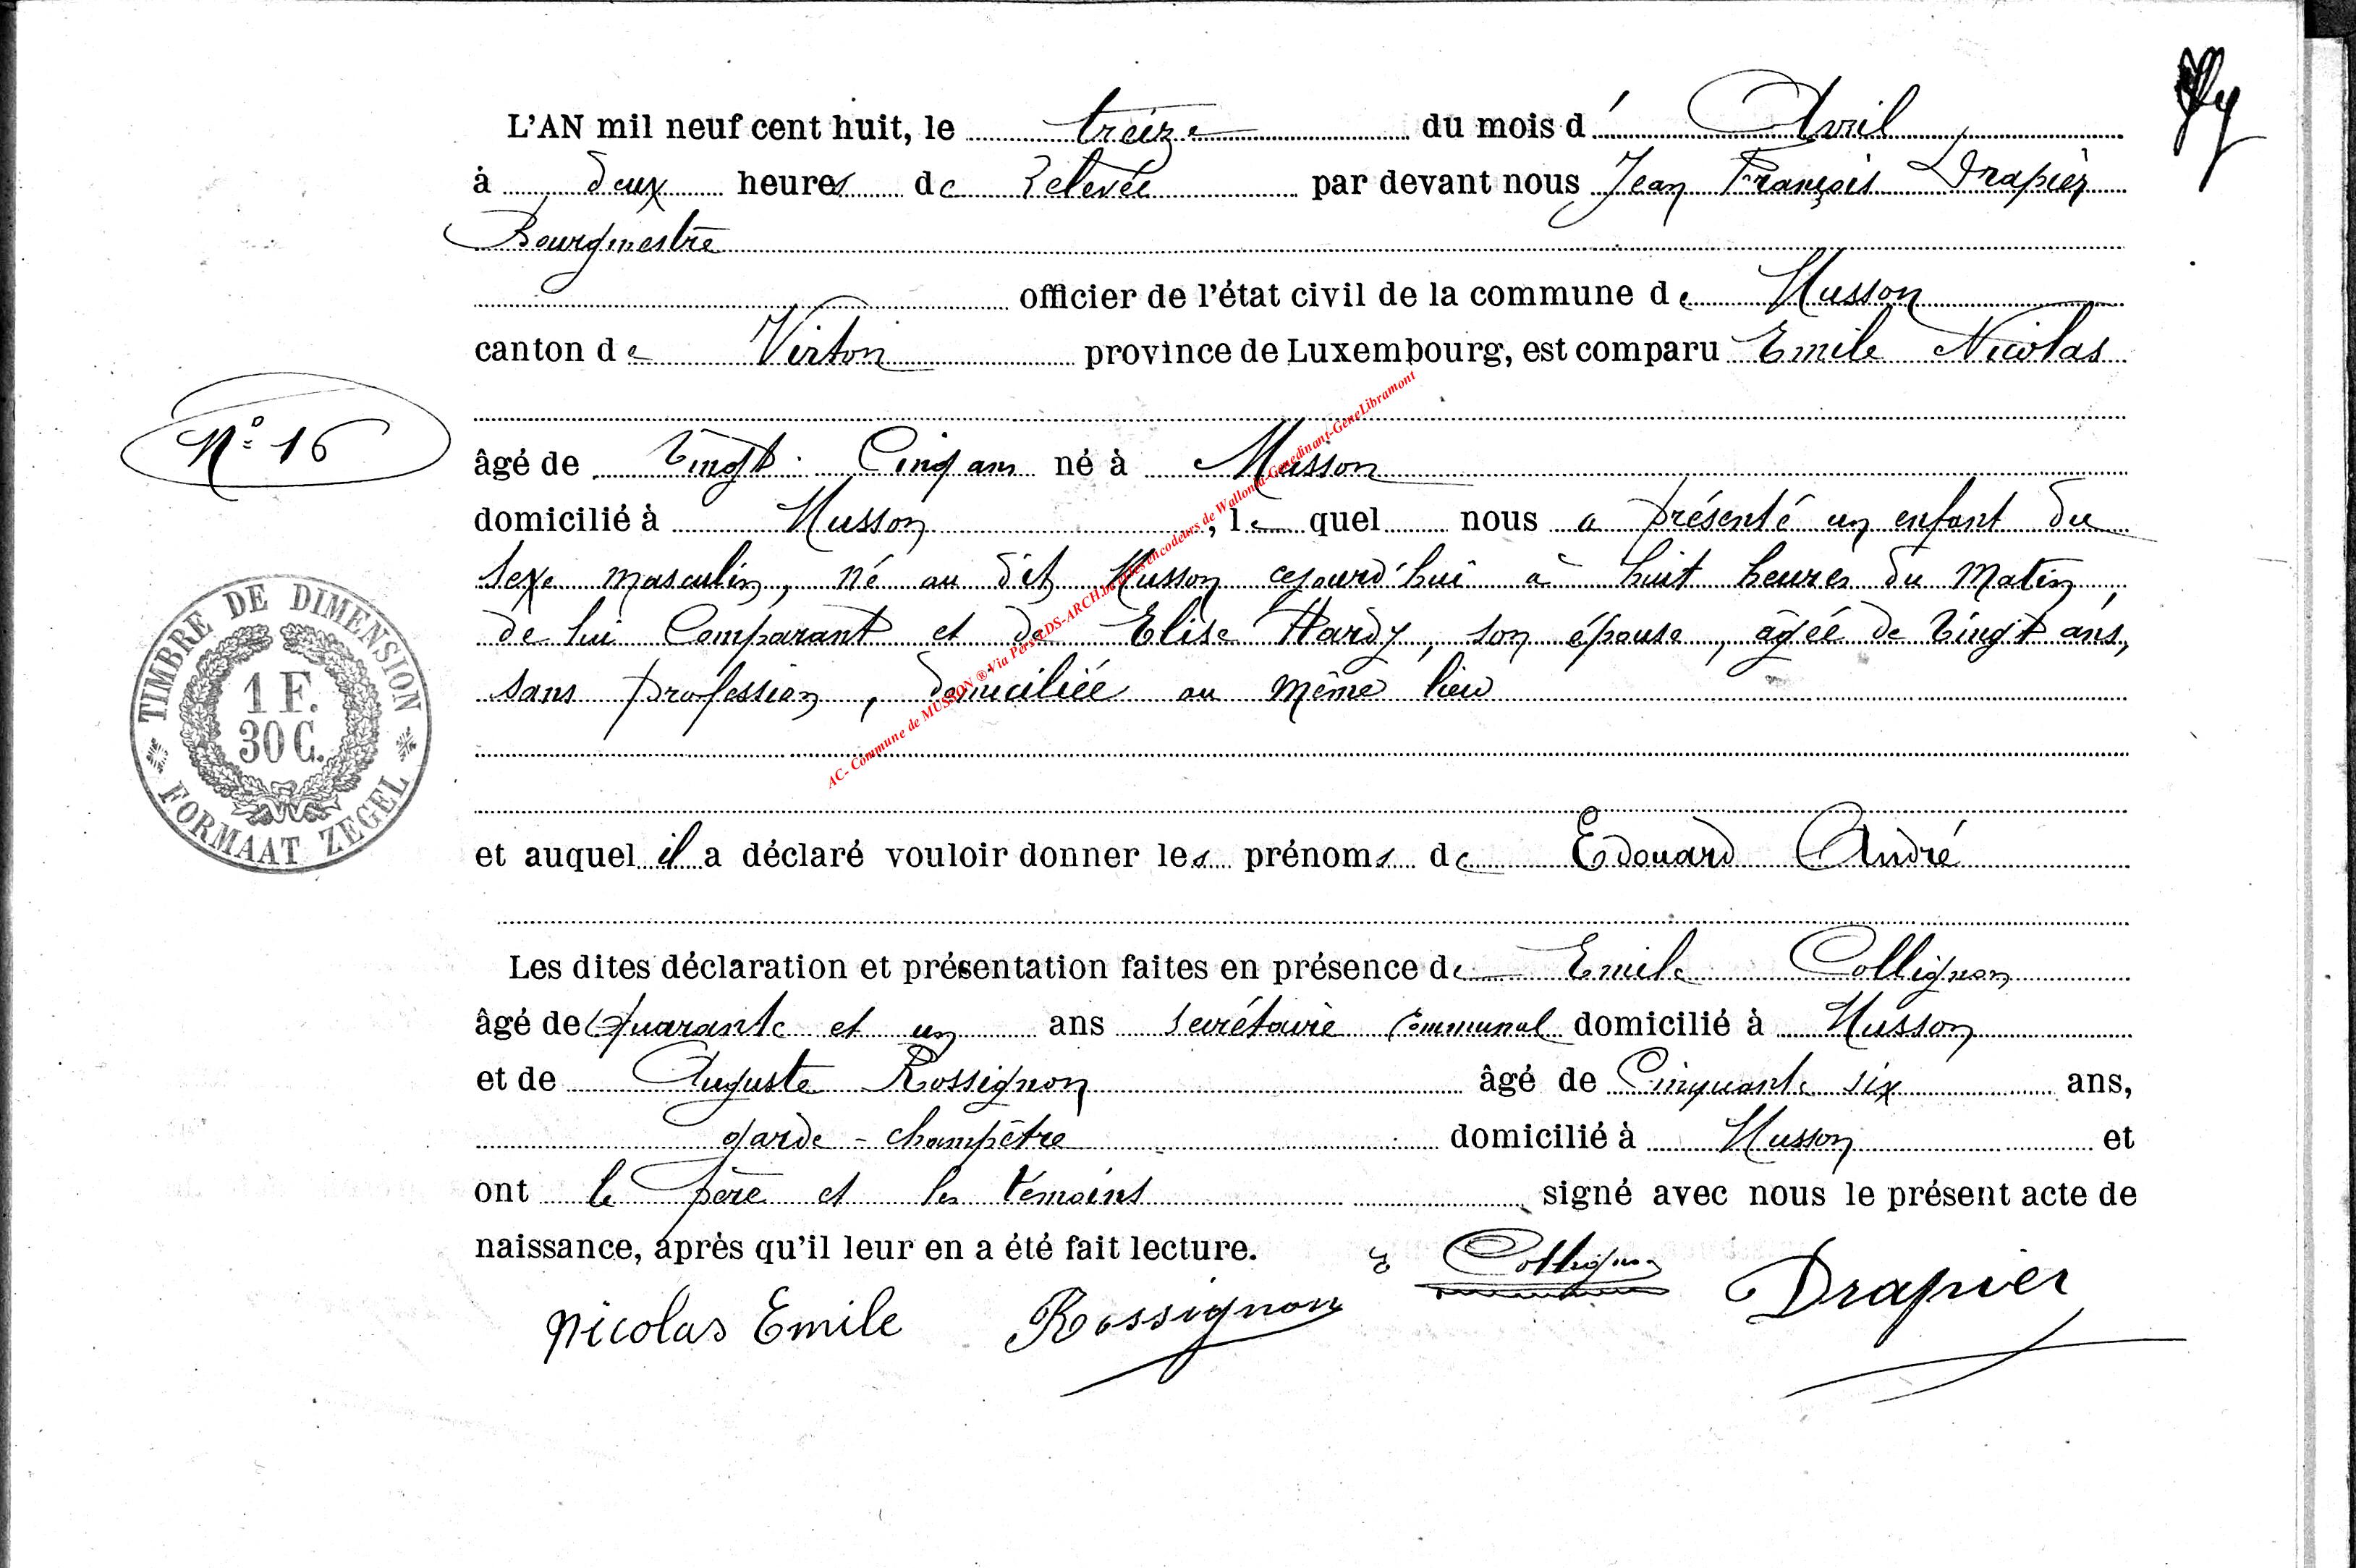 L'AN mil neuf cent huit, le treize du mois d' Avril
à deux heures de Relevée par devant nous Jean François Drapier
Bourgmestre
officier de l'état civil de la commune de Musson
canton de Virton province de Luxembourg, est comparu Emile Nicolas
N° 16
âgé de vingt cinq ans né à Musson
domicilié à Musson, lequel nous a présenté un enfant du
sexe masculin, né au dit Musson cejourd'hui à huit heures du matin,
de lui Comparant et de Elise Hardy, son épouse, âgée de vingt ans,
sans profession, domiciliée au même lieu
TIMBRE DE DIMENSION
1 F.
30 C.
FORMAAT ZEGEL
AC- Commune de MUSSON ® Via Pers LDS-ARCH.be et les encodeurs de Wallonia-Genedinant-GeneLibramont
et auquel il a déclaré vouloir donner les prénoms de Edouard André
Les dites déclaration et présentation faites en présence de Emile Collignon
âgé de quarante et un ans secrétaire communal domicilié à Musson
et de Auguste Rossignon âgé de Cinquante six ans,
garde-champêtre domicilié à Musson et
ont le père et les témoins signé avec nous le présent acte de
naissance, après qu'il leur en a été fait lecture.
Nicolas Emile Rossignon E Collignon Drapier